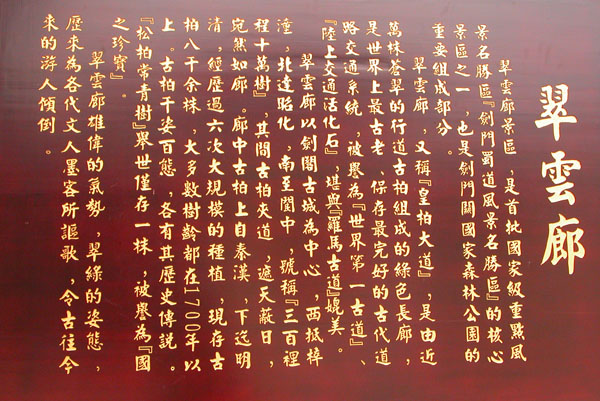 翠雲廊
翠雲廊景區,是首批國家級重點風
景名勝區『劍門蜀道風景名勝區』的核心
景區之一,也是劍門關國家森林公園的
重要組成部分。
翠雲廊,又稱『皇柏大道』,是由近
萬株蒼翠的行道古柏組成的綠色長廊,
是世界上最古老、保存最完好的古代道
路交通系統,被譽為『世界第一古道』、
『陸上交通活化石』,堪與『羅馬古道』媲美。
翠雲廊以劍閣古城為中心,西抵梓
潼,北達昭化,南至閬中,號稱『三百裡
程十萬樹』,其間古柏夾道,遮天蔽日,
宛然如廊。廊中古柏上自秦漢,下迄明
清,經歷過六次大規模的種植,現存古
柏八千余株,大多數樹齡都在1700年以
上。古柏千姿百態,各有其歷史傳說。
『松柏常青樹』舉世僅存一株,被譽為『國
之珍寶』。
翠雲廊雄偉的氣勢,翠綠的姿態,
歷來為各代文人墨客所謳歌,令古往今
來的游人傾倒。